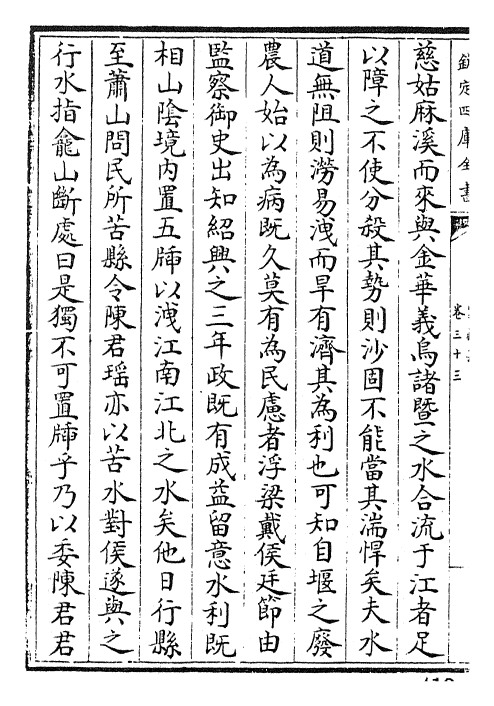 欽定四庫全書
卷三十三
慈姑麻溪而來與金華義烏諸暨之水合流于江者足
以障之不使分殺其勢則沙固不能當其湍悍矣夫水
道無阻則澇易洩而旱有濟其為利也可知自堰之廢
農人始以為病既久莫有為民慮者浮梁戴侯廷節由
監察御史出知紹興之三年政既有成益留意水利既
相山陰境内置五牐以洩江南江北之水矣他日行縣
至蕭山問民所苦縣令陳君瑶亦以苦水對侯遂與之
行水指龕山斷處曰是獨不可置牐乎乃以委陳君君